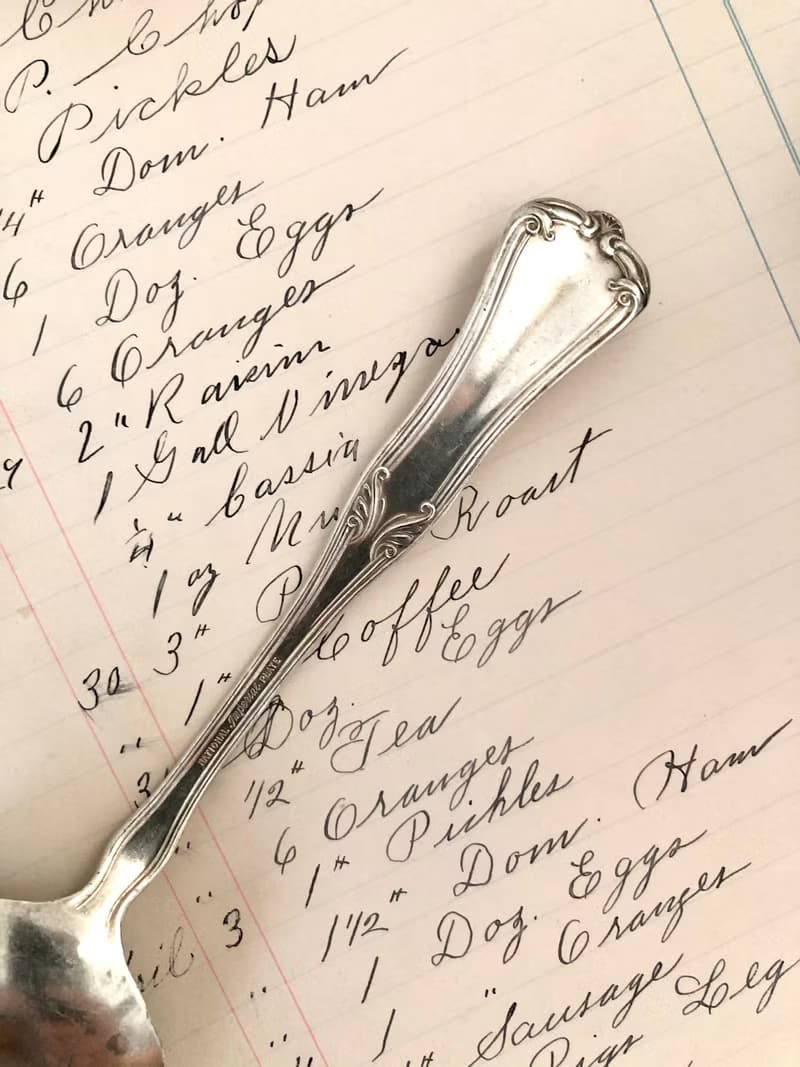 P. Chop
Pickles
1/4# Dom. Ham
6 Oranges
1 Doz. Eggs
6 Oranges
2 " Raisins
1 Gall Vinegar
1/4 " Cassia
1 oz
30 3# P Roast
" 1# Coffee
3 Doz. Eggs
1/2# Tea
" 6 Oranges
" 1# Pickles
3 1 1/2# Dom. Ham
" 1 Doz. Eggs
" 1 " Oranges
# Sausage
Pigs Leg
NATIONAL Imperial PLATE